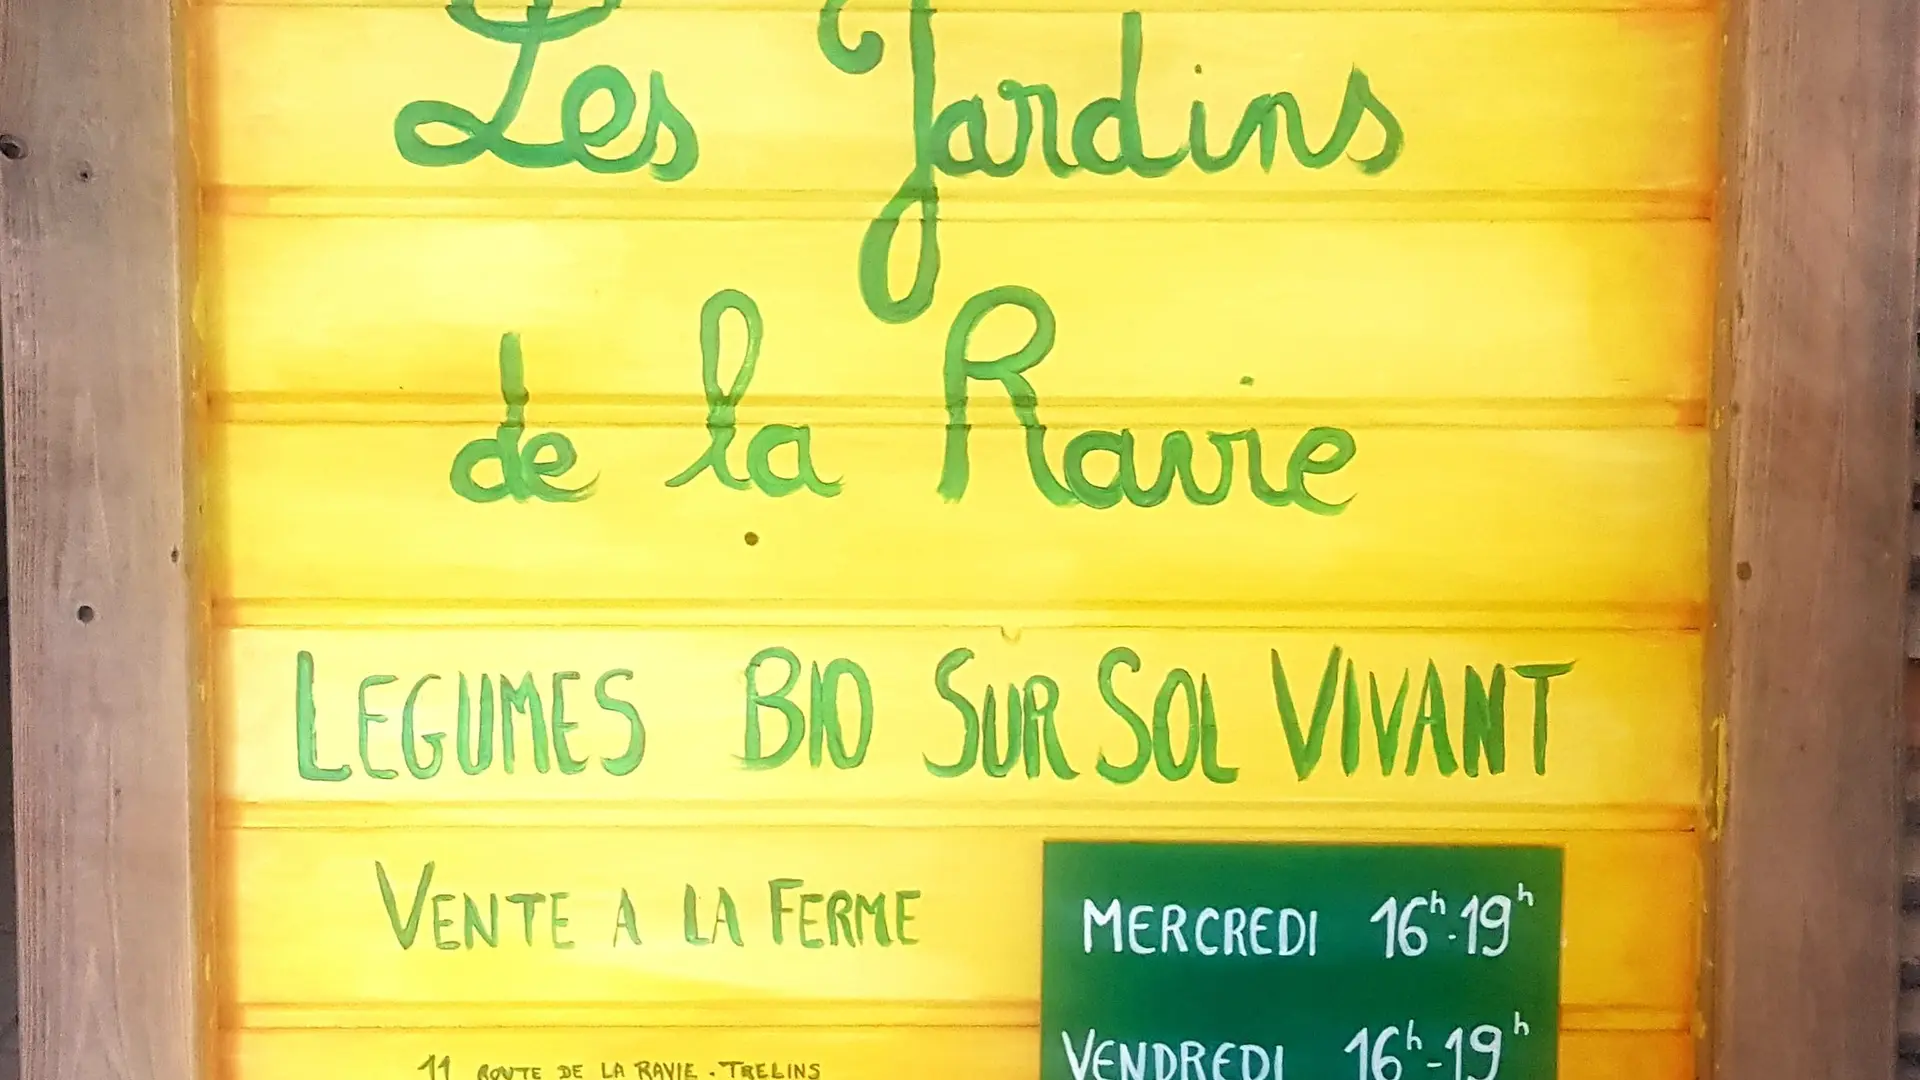 Les Jardins
de la Ravie
LEGUMES BIO SUR SOL VIVANT
VENTE A LA FERME
MERCREDI 16h-19h
VENDREDI 16h-19h
11 ROUTE DE LA RAVIE - TRELINS